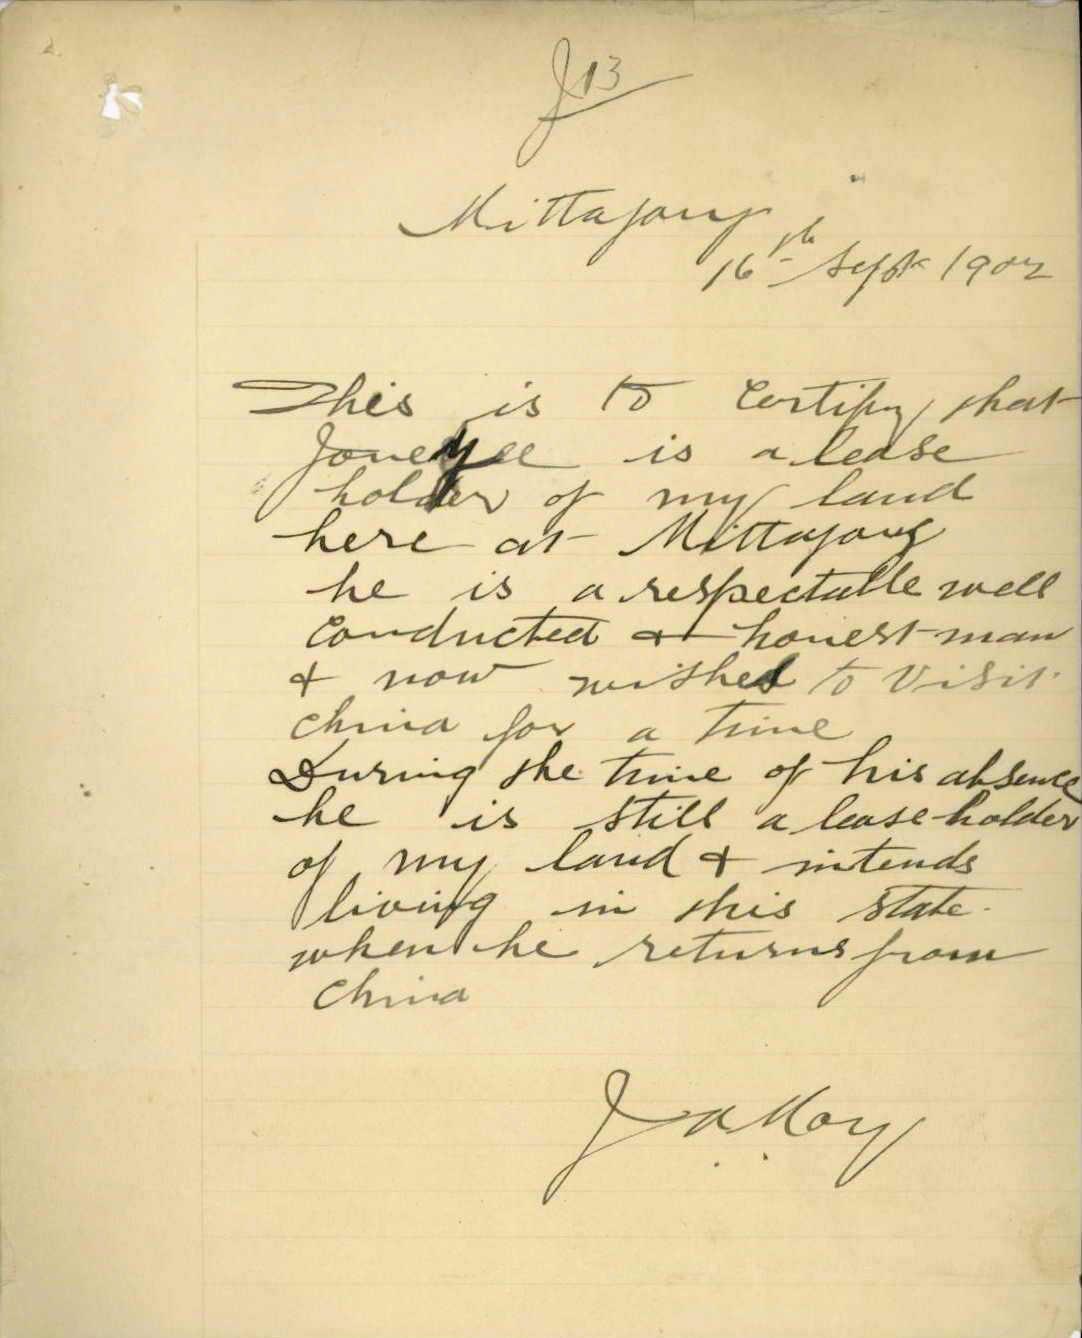 J13
Mittagong
16th Sept 1902
This is to certify that
Joneyee is a lease
holder of my land
here at Mittagong
he is a respectable well
conducted & honest man
& now wishes to visit
China for a time
During the time of his absence
he is still a lease holder
of my land & intends
living in this state
when he returns from
China